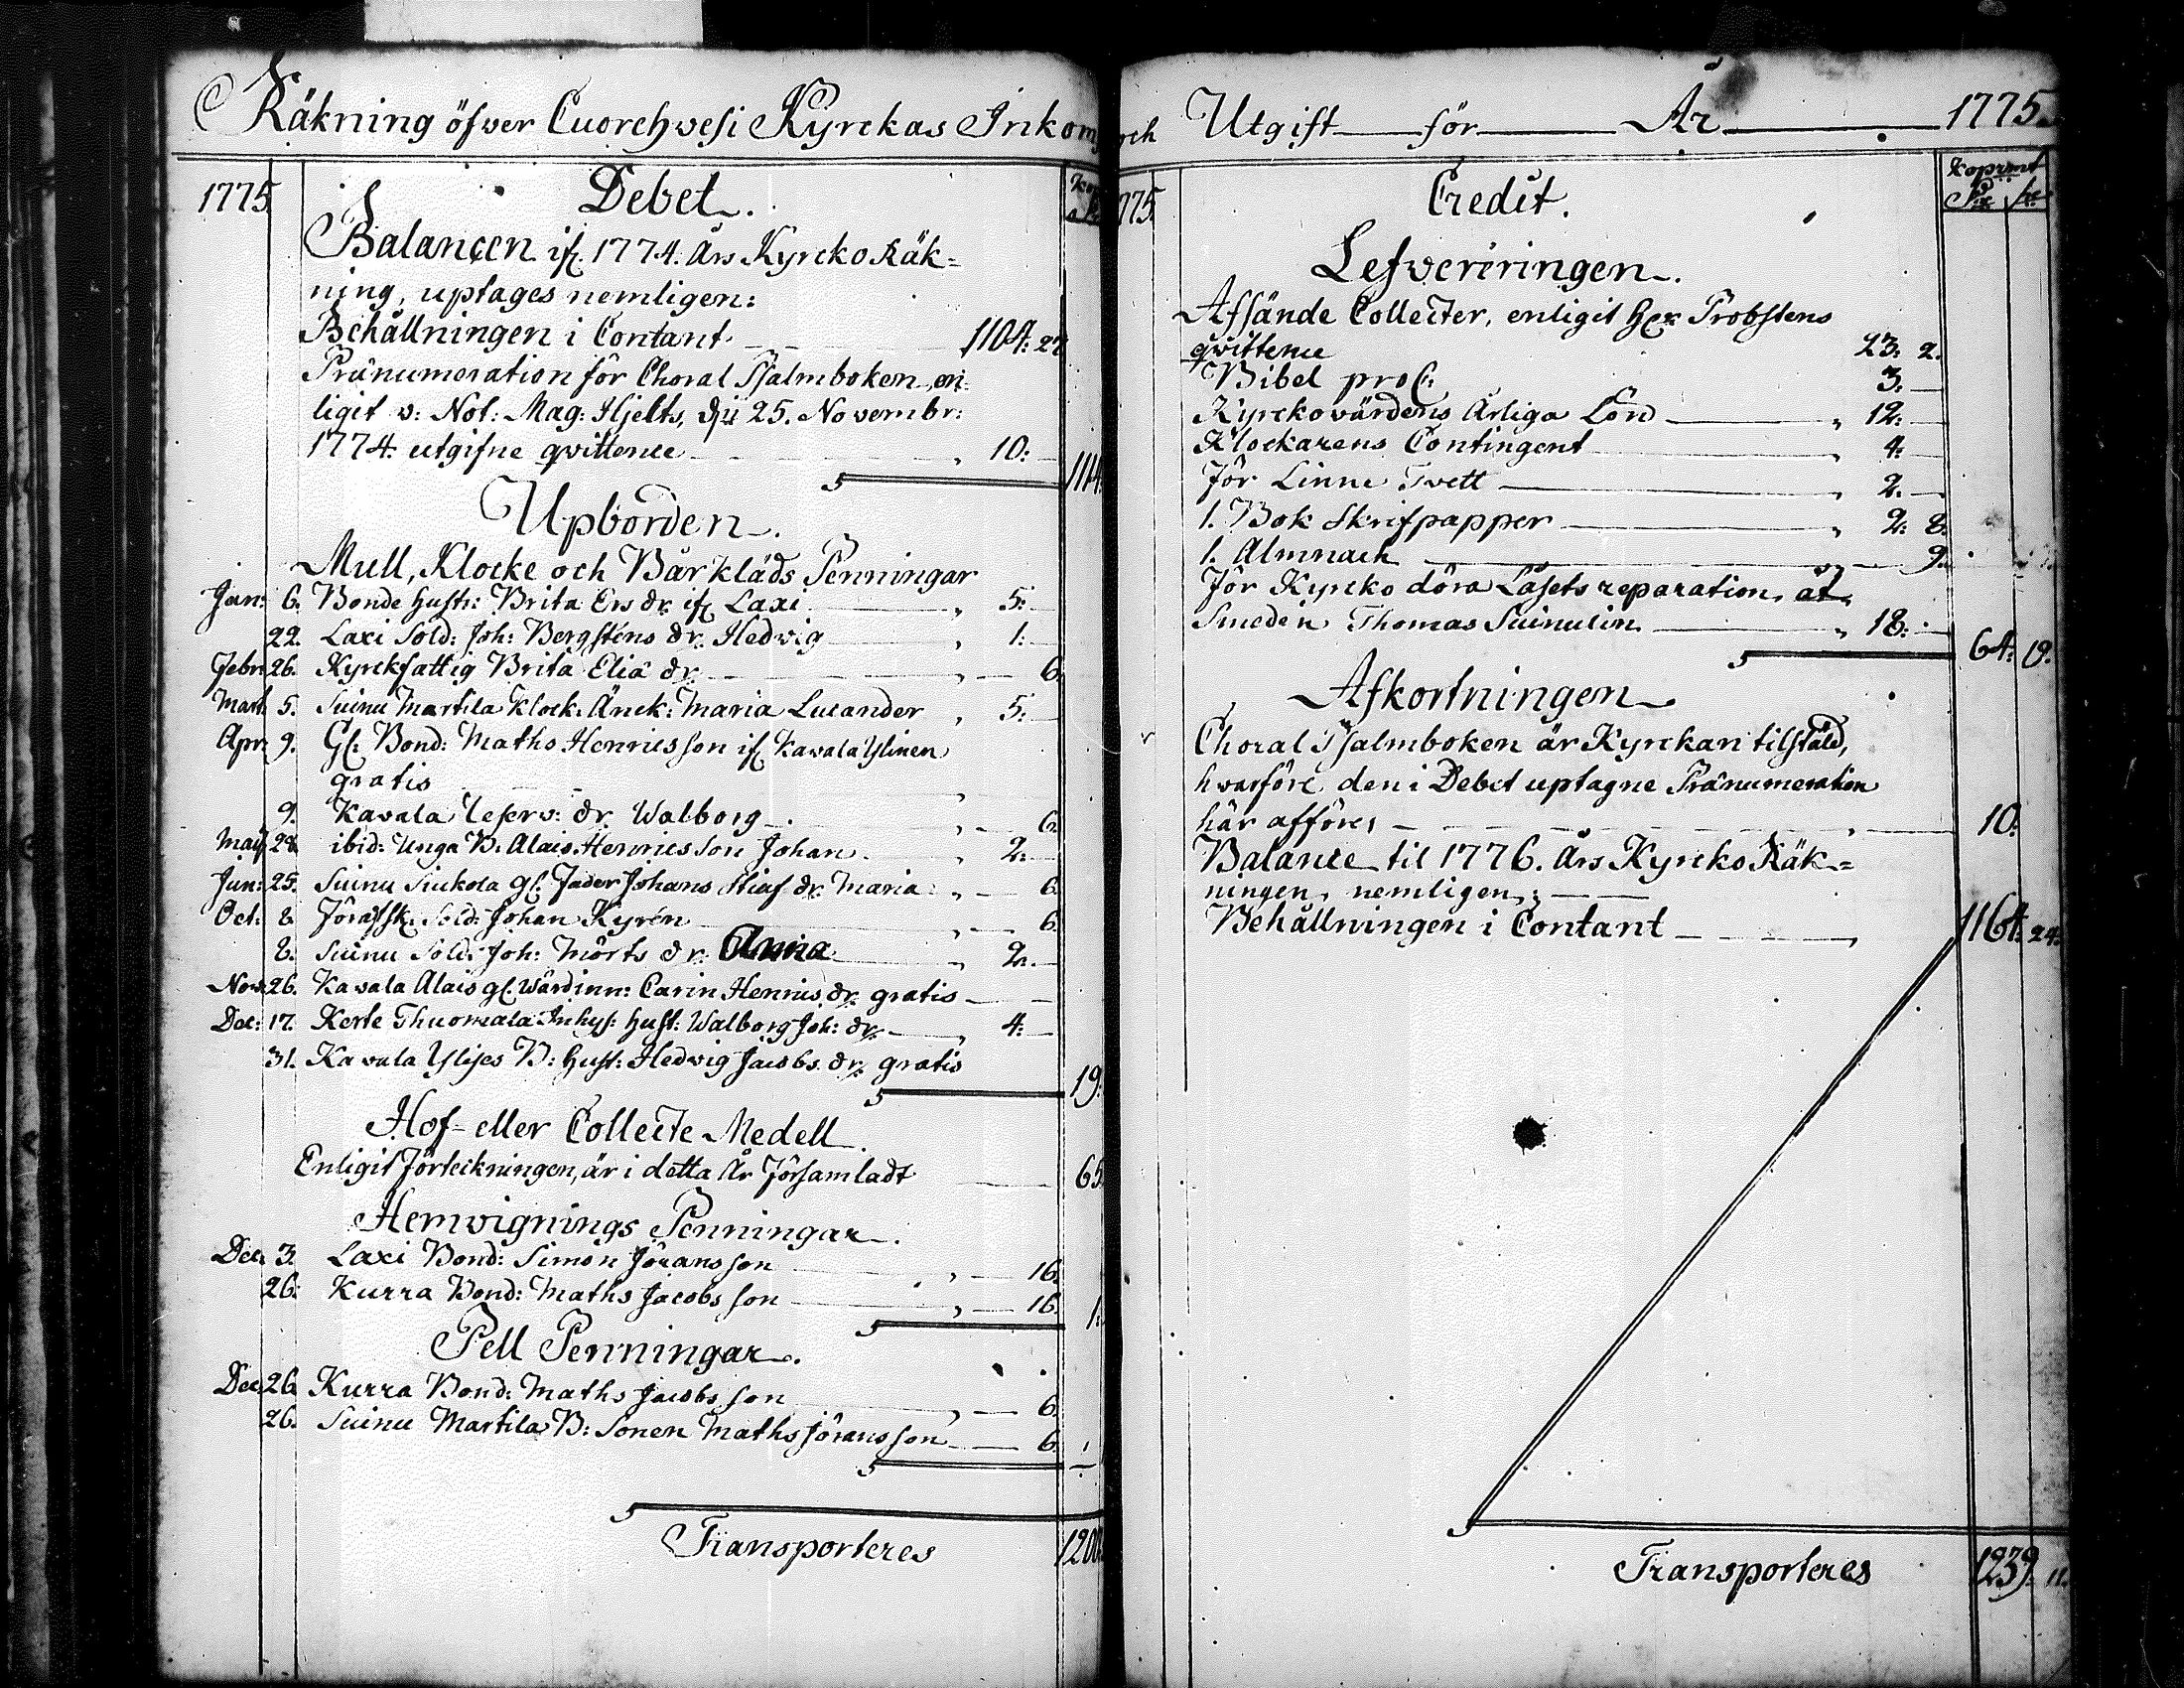 Räkning öfwer Cuorehwesi Kyrckas Inkom
1775. Debet.
Balancen if. 1774. Års Kyrcko Räk=
ning, uptages nemligen:
Behållningen i Contant. 1104: 24
Pränumeration för Choral Psalmboken, en=
ligit v: Not: Mag: Hjelts, 25. Novembr:
1774. utgifne qvittence 10:
1114.
Upbörden.
Mull, Klocke och Bårkläds Penningar
Jan: 6. Bonde hustr: Brita Ers dr. if. Laxi 5:
22. Laxi Sold: Joh: Bergstens dr. Hedwig 1:
Febr: 26. Kyrckfattig Brita Eliæ dr. 6.
Mart. 5. Suinu Martila Klock. Änck: Maria Lucander 5:
Apr: 9. Gl: Bond: Maths Henricsson if. Kavala Ylinen
gratis
9. Kavala dr. Walborg 6.
Maij 28. ibid: Unga B. Alais Henricsson Johan 2:
Jun: 25. Suinu Siukola gl. Fader Johans dr. Maria 6.
Oct: 8. Sold: Johan Kyrén 6.
8. Suinu Sold: Joh: Mörts dr. Anna 2:
Nov: 26. Kavala Alais gl. Wärdinn: Carin Henrics dr. gratis
Dec: 17. Kerte Thuomala Inhys: hust: Walborg Joh: dr. 4:
31. Kavala Ylises B: hust: Hedwig Jacobs dr. gratis
19:
Hof- eller Collecte Medell.
Enligit Förteckningen, är i detta År Församladt 65.
Hemvignings Penningar.
Dec. 3. Laxi Bond: Simon Jöransson 16.
26. Kurra Bond: Maths Jacobsson 16. 1:
Pell Penningar.
Dec. 26. Kurra Bond: Maths Jacobsson 6.
26. Suinu Martila B: Sonen Maths Jöransson 6.
Transporteres 1200.
och Utgift för År 1775.
775. Credit. Koprmt
Lefvereringen.
Afsände Collecter, enligit Probstens
qvittence 23: 2.
Bibel 3:
Kyrckovärdens Årliga Lön 12:
Klockarens Contingent 4:
För Linne Tvett 2.
1. Bok Skrifpapper 2: 8.
1. Almnach 9.
För Kyrcko döra Låsets reparation, åt
Smeden Thomas Suinulin 18:
64: 19.
Afkortningen
Choral Psalmboken är Kyrckan tilstäld,
hwarföre den i Debet uptagne Pränumeration
här afföres 10:
Balance til 1776. Års Kyrcko Räk=
ningen, nemligen:
Behållningen i Contant 1164: 24.
Transporteres 1239. 11.